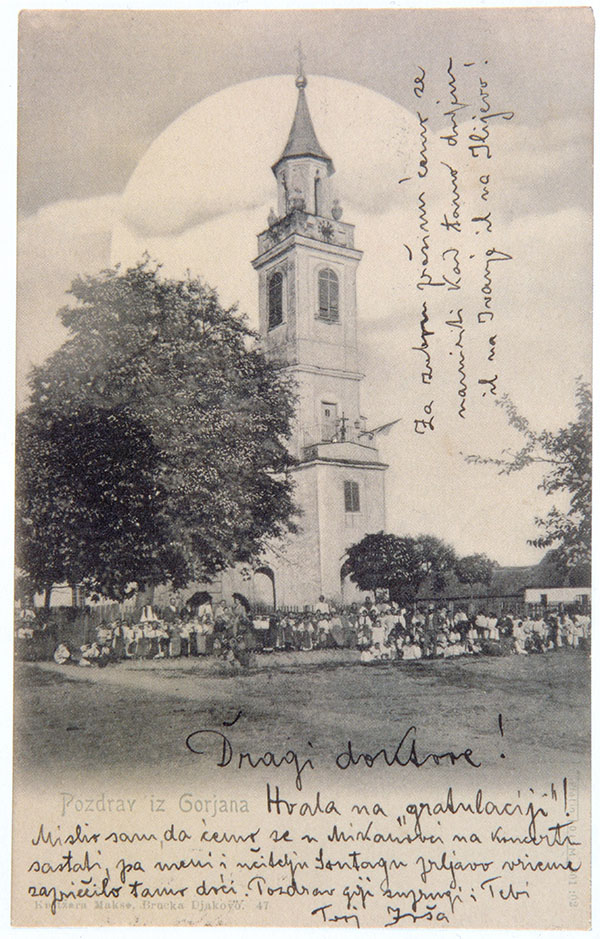 Za rubom
ćemo se
kad tamo
il na Ivanje il na Ilijevo!
Dragi doktore!
Pozdrav iz Gorjana
Hvala na "gratulaciji"!
Mislio sam, da ćemo se u Mikanovci na koncertu
sastati, pa meni i učitelju Sontagu prljavo vrieme
zapriečilo tamo doći. Pozdrav gdji supruzi i Tebi
Tvoj Joša
Makse, Brucka Djakovo. 47